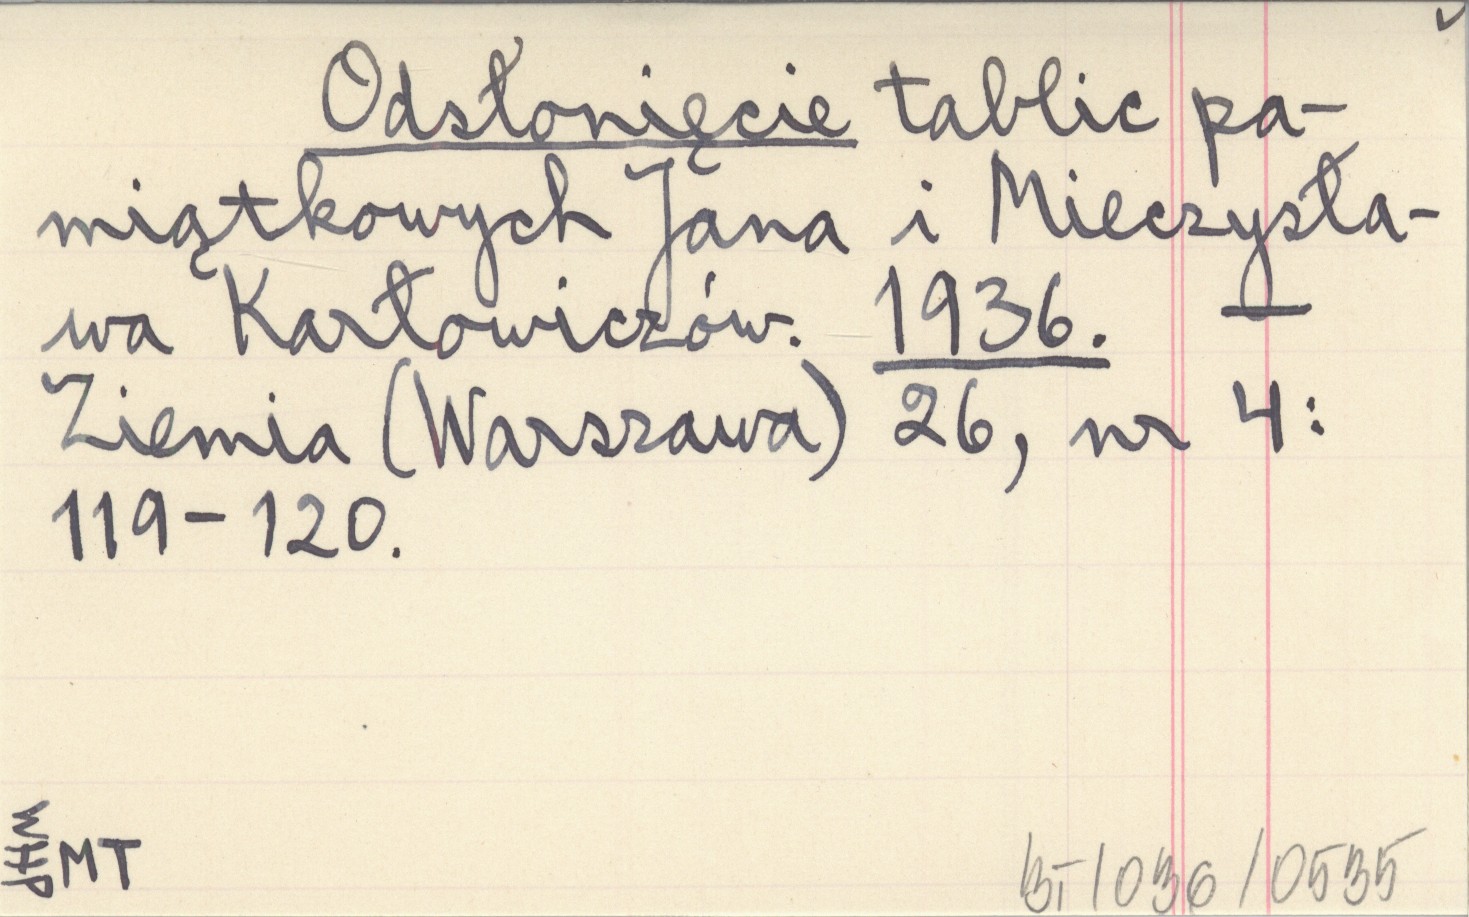 Odsłonięcie tablic pa-
miątkowych Jana i Mieczysła-
wa Karłowiczów. 1936. —
Ziemia (Warszawa) 26, nr 4:
119-120.
WHP
MT
/036/0535